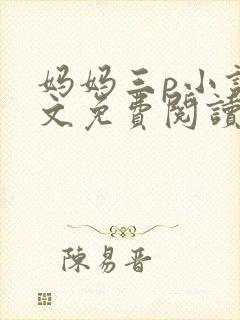 妈妈三p小說
文免費閱讀
陳易晋